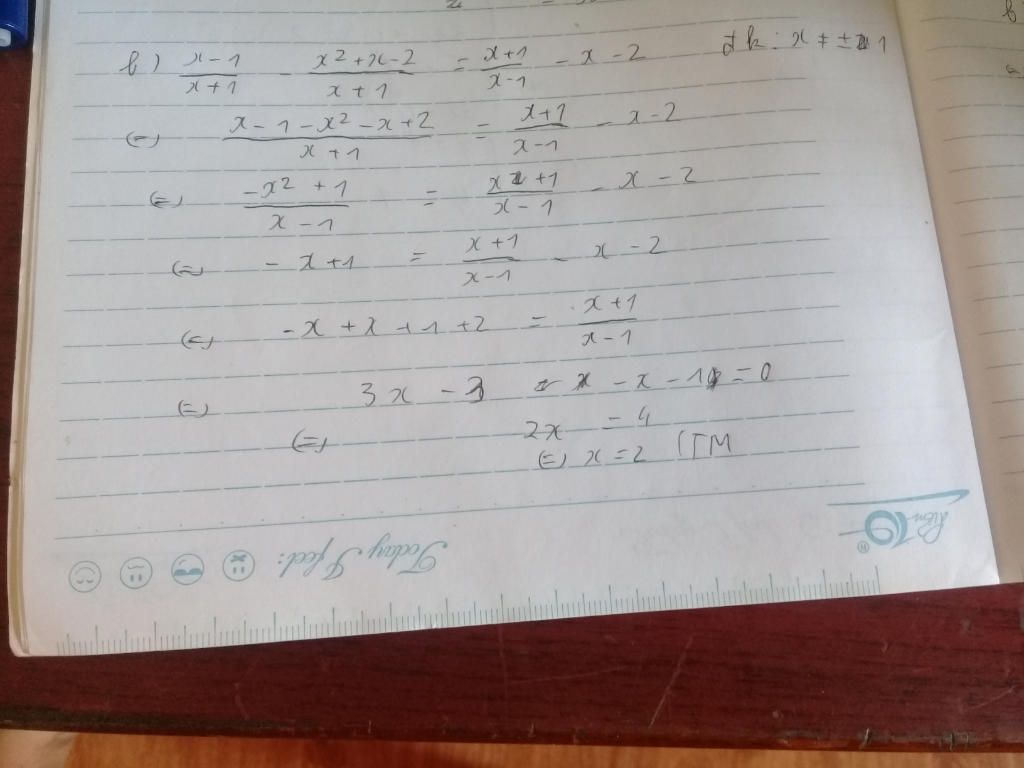 b) \frac{x-1}{x+1} - \frac{x²+x-2}{x+1} = \frac{x+1}{x-1} - x - 2 đk: x ≠ ±1
(=) \frac{x-1-x²-x+2}{x+1} = \frac{x+1}{x-1} - x-2
(=) \frac{-x²+1}{x-1} = \frac{x+1}{x-1} - x - 2
(=) -x+1 = \frac{x+1}{x-1} - x - 2
(=) -x+x+1+2 = \frac{x+1}{x-1}
(=) 3x - 3 - x - 1 = 0
(=) 2x = 4
(=) x = 2 (TM
Today I feel: